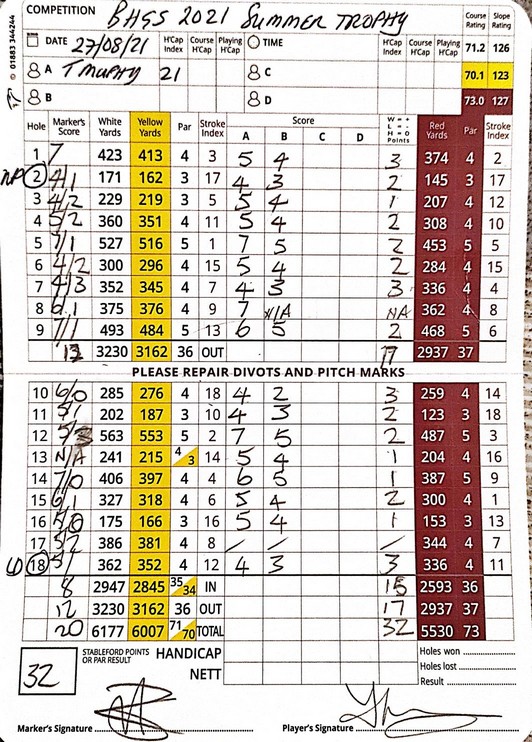 COMPETITION BHGS 2021 SUMMER TROPHY Course Rating Slope Rating
© 01883 344264
DATE 27/08/21 H'Cap Index Course H'Cap Playing H'Cap TIME H'Cap Index Course H'Cap Playing H'Cap 71.2 126
A T MURPHY 21 C 70.1 123
B D 73.0 127
Hole Marker's Score White Yards Yellow Yards Par Stroke Index Score A B C D W = + L = - H = O Points Red Yards Par Stroke Index
1 7 423 413 4 3 5 4 3 374 4 2
NP 2 4/1 171 162 3 17 4 3 2 145 3 17
3 4/2 229 219 3 5 5 4 1 207 4 12
4 5/2 360 351 4 11 5 4 2 308 4 10
5 7/1 527 516 5 1 7 5 2 453 5 5
6 4/2 300 296 4 15 5 4 2 284 4 15
7 4/3 352 345 4 7 4 3 3 336 4 4
8 6/1 375 376 4 9 7 N/A NA 362 4 8
9 7/1 493 484 5 13 6 5 2 468 5 6
3230 3162 36 OUT 17 2937 37
PLEASE REPAIR DIVOTS AND PITCH MARKS
10 6/0 285 276 4 18 4 2 3 259 4 14
11 5/1 202 187 3 10 4 3 2 123 3 18
12 563 553 5 2 7 5 2 487 5 3
13 N/A 241 215 4 3 14 5 4 1 204 4 16
14 7/0 406 397 4 4 6 5 1 387 5 9
15 6/1 327 318 4 6 5 4 2 300 4 1
16 175 166 3 16 5 4 1 153 3 13
17 5/2 386 381 4 8 / / / 344 4 7
18 5/ 362 352 4 12 4 3 3 336 4 11
8 2947 2845 35 34 IN 15 2593 36
12 3230 3162 36 OUT 17 2937 37
20 6177 6007 71 70 TOTAL 32 5530 73
32 STABLEFORD POINTS OR PAR RESULT HANDICAP Holes won
Holes lost
NETT Result
Marker's Signature Player's Signature